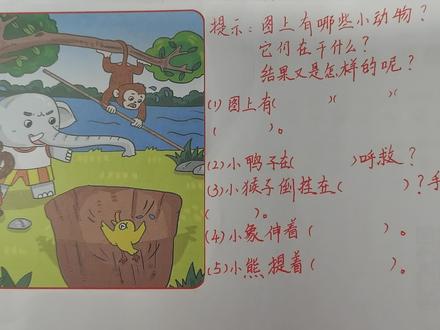 提示：图上有哪些小动物？
它们在干什么？
结果又是怎样的呢？
(1) 图上有(　　　)(　　　)
(　　　)。
(2) 小鸭子在(　　　)呼救？
(3) 小猴子倒挂在(　　　)？手
(　　　)。
(4) 小象伸着(　　　)。
(5) 小熊提着(　　　)。